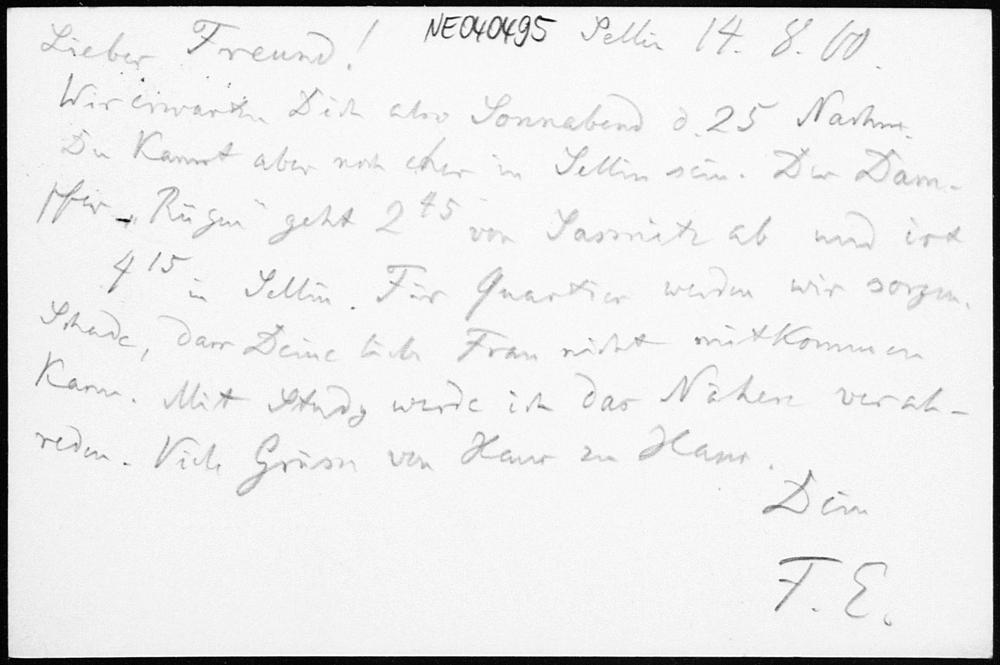 Lieber Freund! NE040495 Sellin 14. 8. 00.
Wir erwarten Dich also Sonnabend d. 25 Nachm.
Du Kannst aber noch eher in Sellin sein. Der Dam-
pfer „Rügen" geht 2 45 von Sassnitz ab und ist
4 15 in Sellin. Für Quartier werden wir sorgen.
Schade, dass Deine liebe Frau nicht mitkommen
Kann. Mit Study werde ich das Nähere verab-
reden. Viele Grüsse von Haus zu Haus.
Dein
F. E.